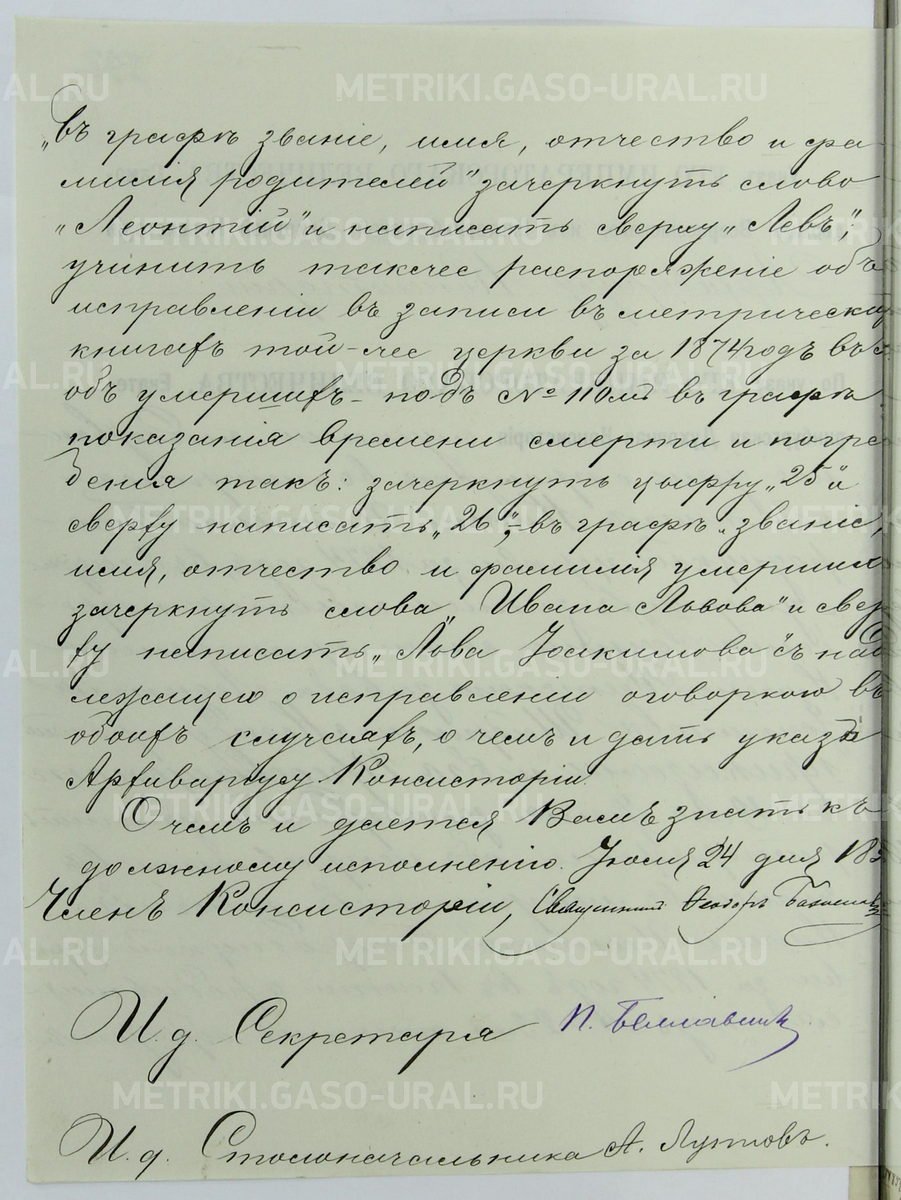 „въ графѣ званіе, имя, отчество и фа-
милія родителей" зачеркнуть слово
„Леонтій" и написать сверху „Левъ";
учинить также распоряженіе объ
исправленіи въ записи въ метрической
книгахъ той-же церкви за 1874 годъ въ
объ умершихъ - подъ № 110мъ въ графѣ
показанія времени смерти и погре-
бенія такъ: зачеркнуть цыфру „25" и
сверху написать „26", - въ графѣ „званіе,
имя, отчество и фамилія умершихъ
зачеркнуть слова „Ивана Львова" и свер-
ху написать „Льва Іоакимова" съ над
лежащею о исправленіи оговоркою въ
обоихъ случаяхъ, о чемъ и дать указъ
Архиваріусу Консисторіи.
О чемъ и дается Вамъ знать къ
должному исполненію. Іюля 24 дня 18
Членъ Консисторіи, Священникъ Ѳеодоръ
И. д. Секретаря П.
И. д. Столоначальника А. Лутковъ.
METRIKI.GASO-URAL.RU